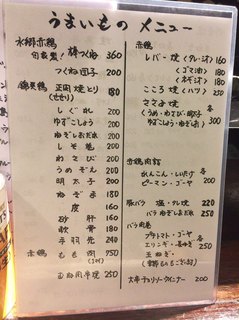 うまいもの メニュー
水郷赤鶏
自家製! 棒つくね 360
つくね団子 200
錦爽鶏 正肉焼とり 180
(せせり)
しぐれ 200
ゆずこしょう 200
ねぎしお玉ねぎ 200
しそ巻 200
わさび 200
うめぞん 200
明太子 200
ねぎま 200
皮 160
砂肝 160
軟骨 180
手羽先 240
赤鶏 もも肉 750
もも肉半焼 250
赤鶏
レバー焼 (タレ・シオ) 160
(ゴマ油) 180
(ネギシオ) 180
こころ焼 (ハツ) 250
ささみ焼 各
(うめ・わさび・明太子
ゆずこしょう・ねぎしお) 200
赤鶏肉詰
れんこん・しいたけ 各
ピーマン・ゴーヤ 200
豚バラ 塩・タレ焼 220
バラねぎしお玉ねぎ 250
バラ肉巻
プチトマト・ゴーヤ 各
エリンギ・長ねぎ 250
玉ねぎ・
大串チョリソーウインナー 200